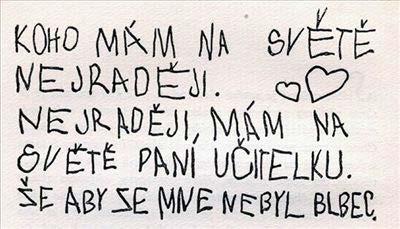 KOHO MÁM NA SVĚTĚ
NEJRADĚJI.
NEJRADĚJI, MÁM NA
SVĚTĚ PANÍ UČITELKU.
ŠE ABY ZE MNE NEBYL BLBEC.